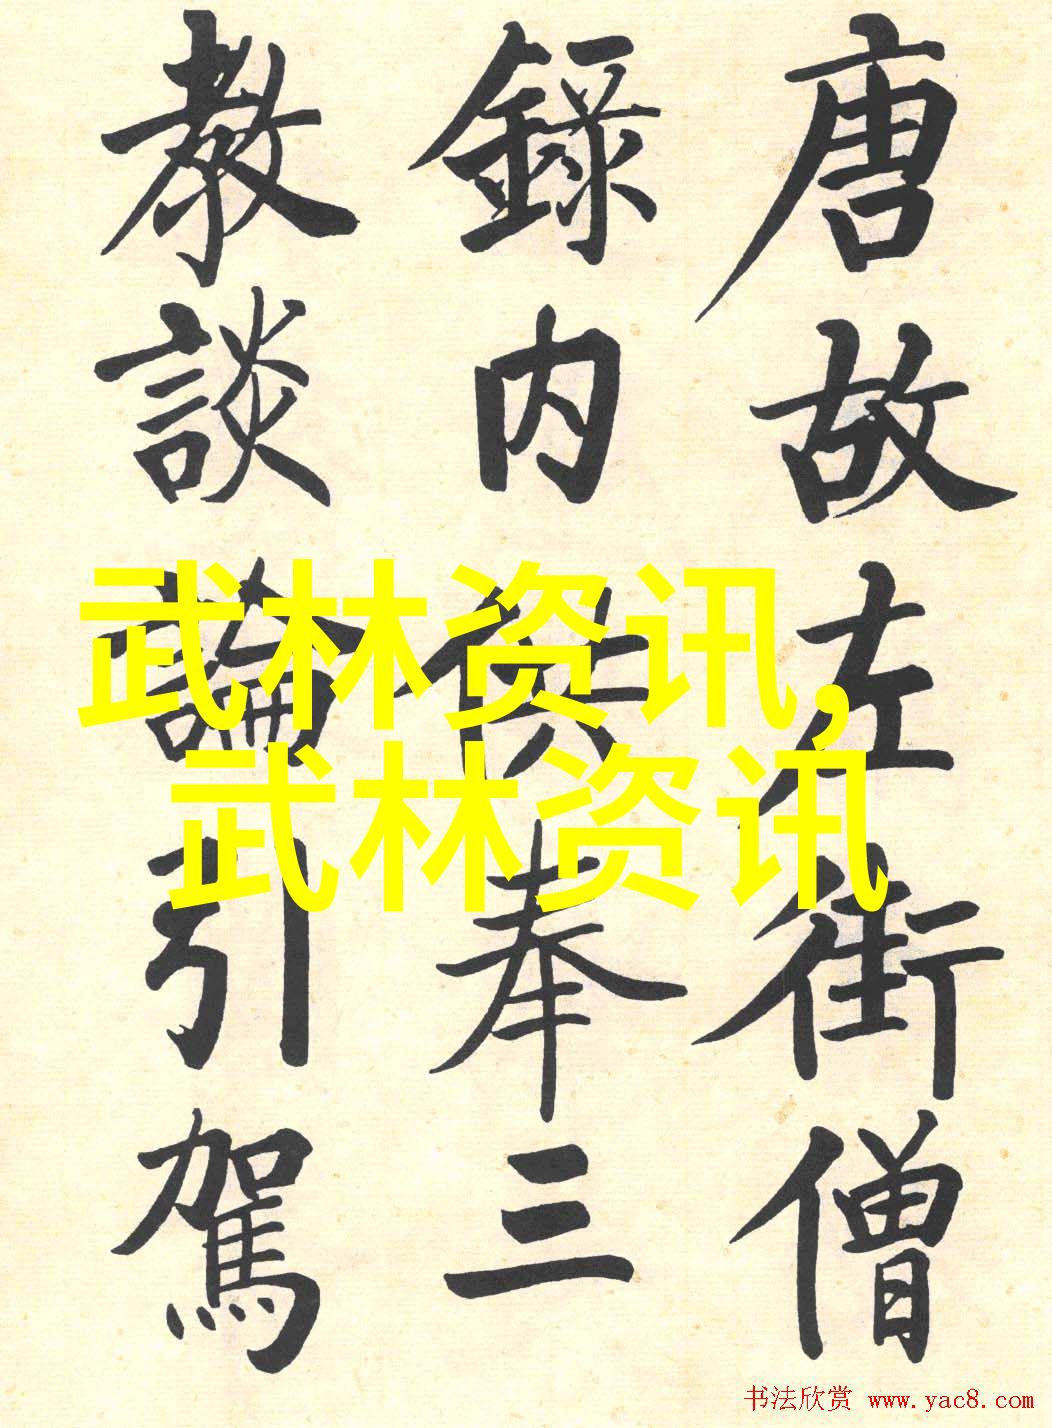 唐故左街僧
錄内供奉三
教談論引駕
武林资讯,
武林资讯
书法欣赏 www.yac8.com